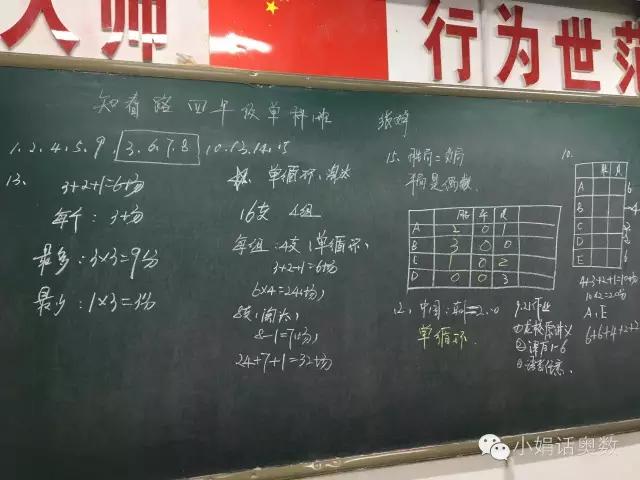 大师
行为世范
知春路四年级单科班
1. 2. 4. 5. 9. 3. 6. 7. 8 10. 13. 14. 15
13.
3+2+1=6场
每个：3场
最多：3×3=9分
最少：1×3=3分
单循环、淘汰
16支 4组
每组：4支（单循环）
3+2+1=6场
6×4=24（场）
8支，淘汰
8-1=7（场）
24+7+1=32场
15. 胜局=负局
平局是偶数.
胜 平 负
A 2 0 1
B 3 0 0
C 1 0 2
D 0 0 3
12. 中国
单循环.
9.21作业
②课后1-6
10.
胜 负
A 6
B 4
C 2
D 2
E 6
4+3+2+1=10场
10×2=20分
A、E
6+6+4+2+2
小娟话奥数